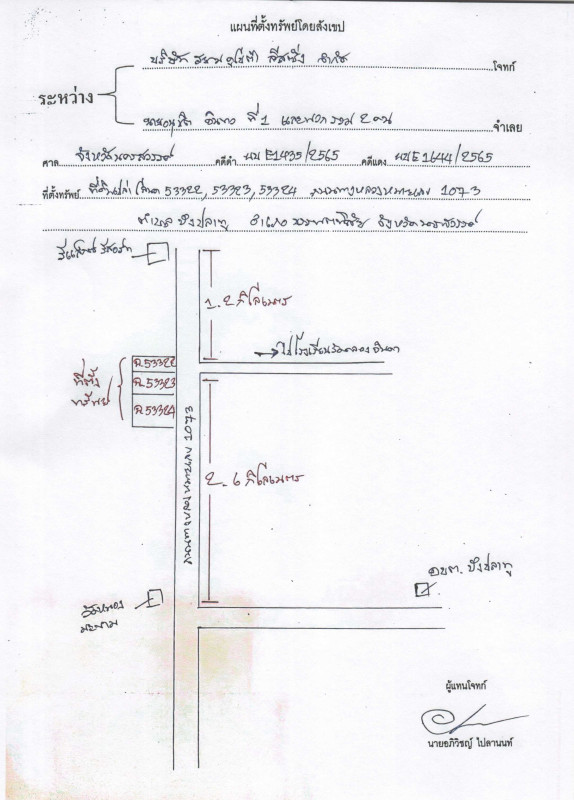 แผนที่ตั้งทรัพย์โดยสังเขป
บริษัท สยาม คูโบต้า ลีสซิ่ง จำกัด โจทก์
ระหว่าง
จินดา ที่ 1 และพวกรวม 2 คน จำเลย
ศาล จังหวัดนครสวรรค์ คดีดำ ผบ E1435/2565 คดีแดง ผบ E1644/2565
ที่ตั้งทรัพย์ ที่ดินเปล่า โฉนด 53322, 53323, 53324 ถนนทางหลวงหมายเลข 1073
ตำบล บึงปลาทู อำเภอ บรรพตพิสัย จังหวัดนครสวรรค์
รีสอร์ท
1.2 กิโลเมตร
ไปโรงเรียนวัดคลองจินดา
ที่ตั้งทรัพย์
ฉ.53322
ฉ.53323
ฉ.53324
ถนนทางหลวงหมายเลข 1073
2.6 กิโลเมตร
อบต. บึงปลาทู
วัดหนองมะขาม
ผู้แทนโจทก์
นายอภิวิชญ์ ไปดานนท์